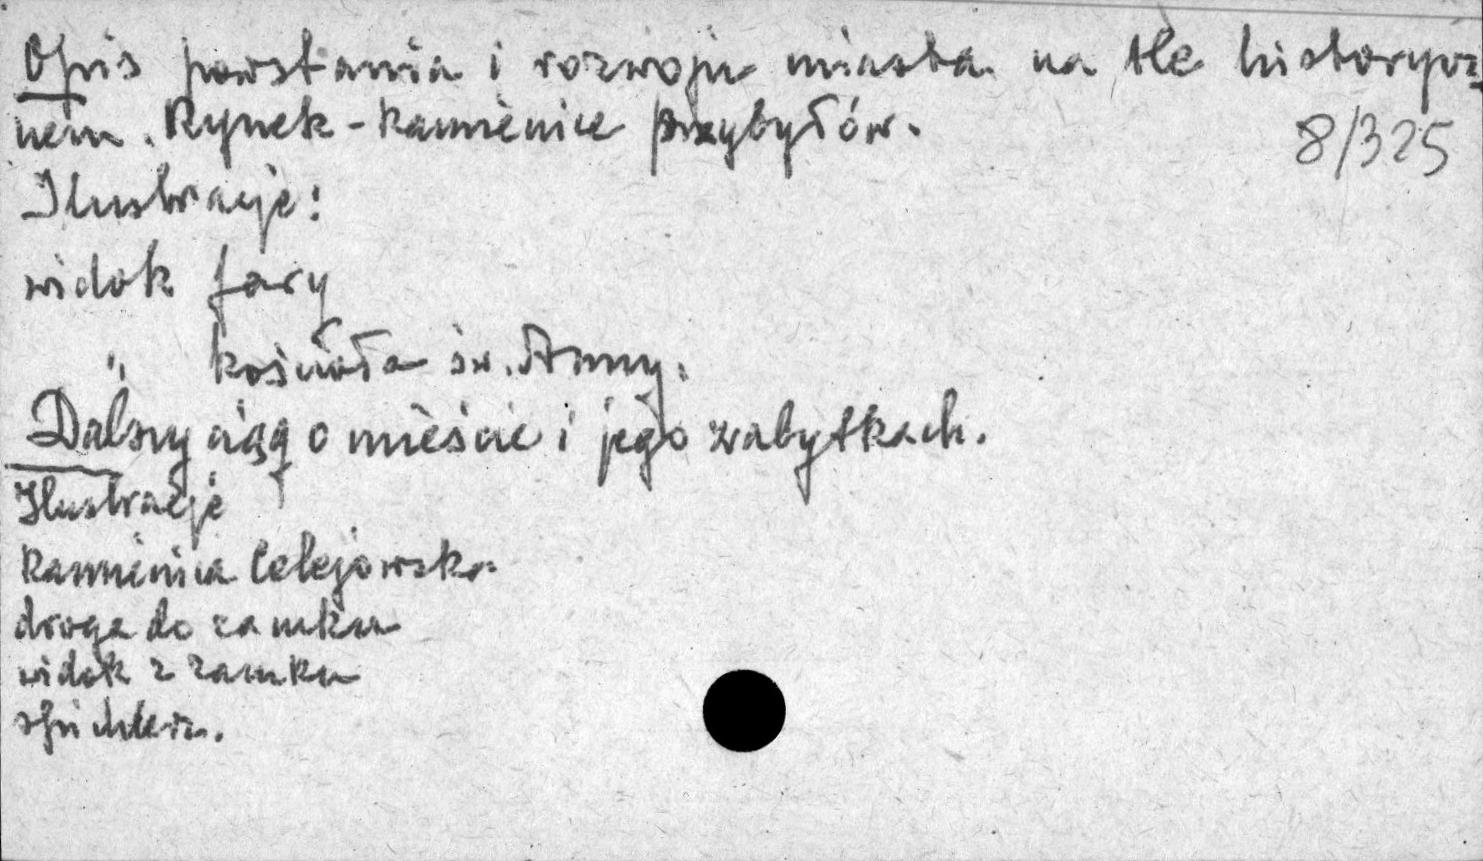 Opis powstania i rozwoju miasta na tle historycz
nem. Rynek - kamienice Przybyłów.
8/325
Ilustracje:
widok fary
" kościoła św. Anny.
Dalszy ciąg o mieście i jego zabytkach.
Ilustracje
kamienica Celejowska
droga do zamku
widok z zamku
spichlerz.